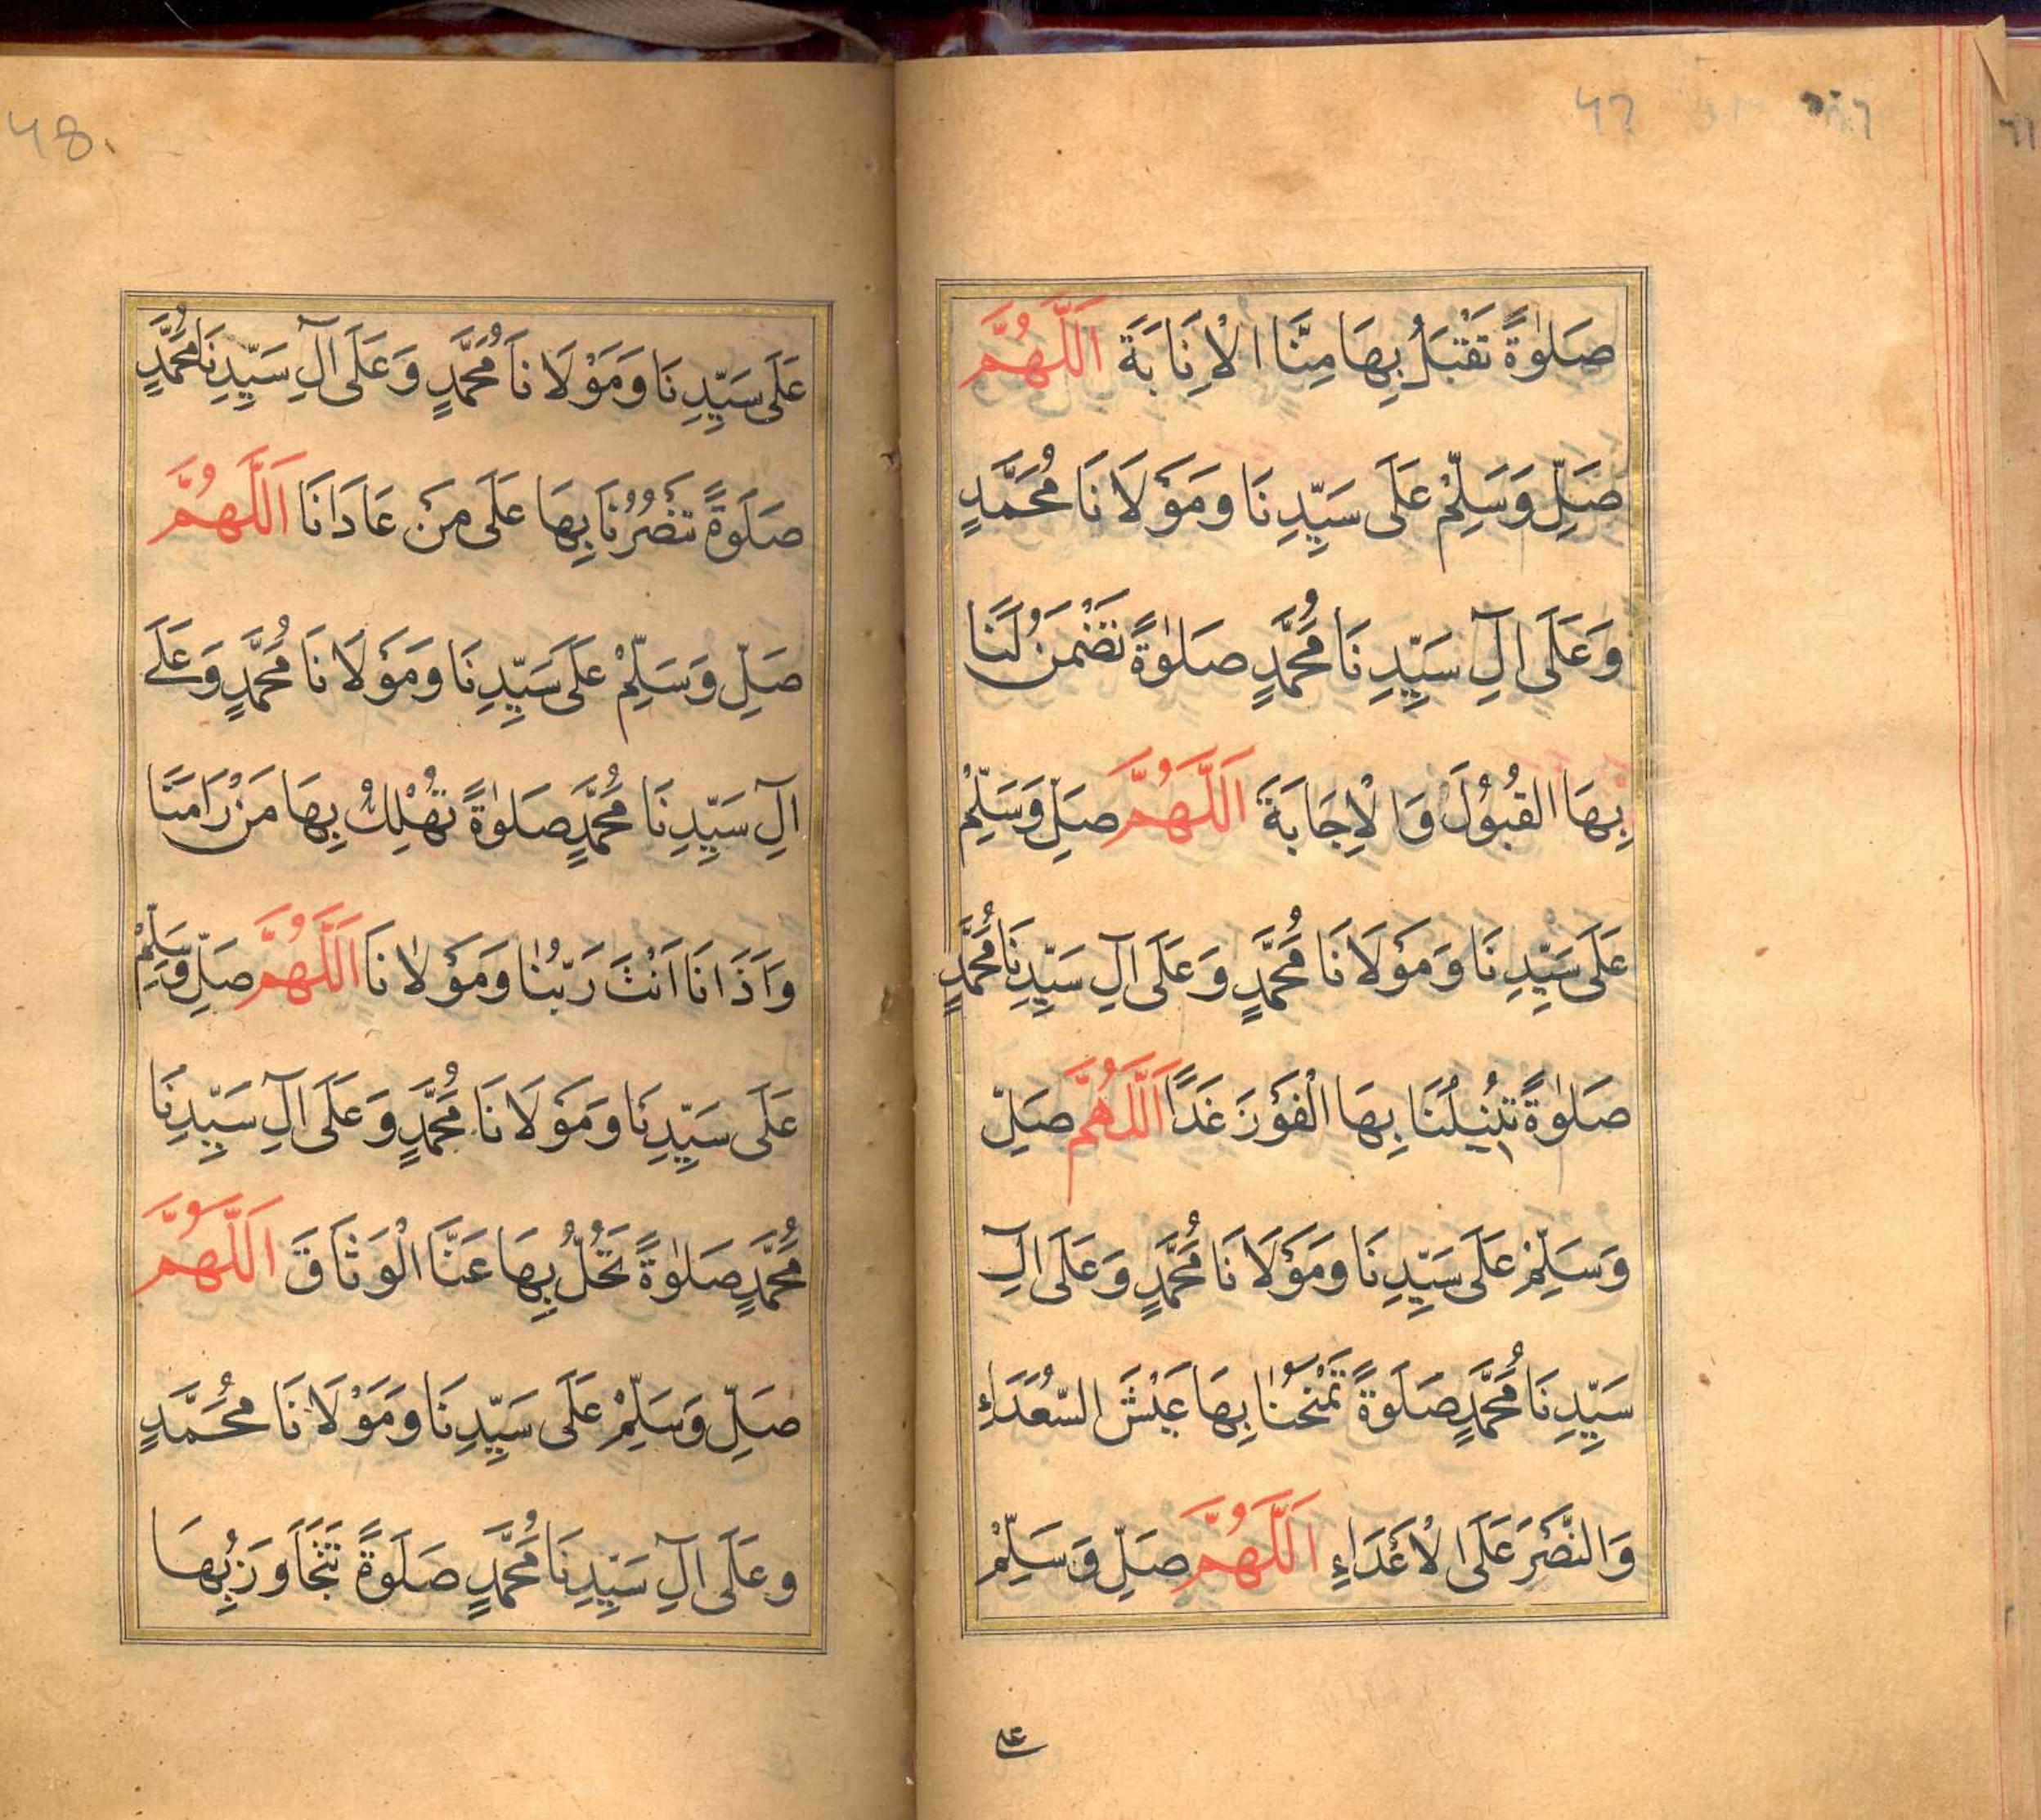 صَلٰوةً تَقْبَلُ بِهَا مِنَّا الْاِنَابَةَ اَللّٰهُمَّ
صَلِّ وَسَلِّمْ عَلَى سَيِّدِنَا وَمَوْلَانَا مُحَمَّدٍ
وَعَلَى اٰلِ سَيِّدِنَا مُحَمَّدٍ صَلٰوةً تَضْمَنُ لَنَا
بِهَا الْقُبُوْلَ وَالْاِجَابَةَ اَللّٰهُمَّ صَلِّ وَسَلِّمْ
عَلَى سَيِّدِنَا وَمَوْلَانَا مُحَمَّدٍ وَعَلَى اٰلِ سَيِّدِنَا مُحَمَّدٍ
صَلٰوةً تُنِيْلُنَا بِهَا الْفَوْزَ غَدًا اَللّٰهُمَّ صَلِّ
وَسَلِّمْ عَلَى سَيِّدِنَا وَمَوْلَانَا مُحَمَّدٍ وَعَلَى اٰلِ
سَيِّدِنَا مُحَمَّدٍ صَلَوةً تَمْنَحُنَا بِهَا عَيْشَ السُّعَدَاءِ
وَالنَّصْرَ عَلَى الْاَعْدَاءِ اَللّٰهُمَّ صَلِّ وَسَلِّمْ
على
عَلَى سَيِّدِنَا وَمَوْلَانَا مُحَمَّدٍ وَعَلَى اٰلِ سَيِّدِنَا مُحَمَّدٍ
صَلَوةً تَنْصُرُنَا بِهَا عَلَى مَنْ عَادَانَا اَللّٰهُمَّ
صَلِّ وَسَلِّمْ عَلَى سَيِّدِنَا وَمَوْلَانَا مُحَمَّدٍ وَعَلَى
اٰلِ سَيِّدِنَا مُحَمَّدٍ صَلٰوةً تُهْلِكُ بِهَا مَنْ رَامَنَا
وَاَذَانَا اَنْتَ رَبُّنَا وَمَوْلَانَا اَللّٰهُمَّ صَلِّ وَسَلِّمْ
عَلَى سَيِّدِنَا وَمَوْلَانَا مُحَمَّدٍ وَعَلَى اٰلِ سَيِّدِنَا
مُحَمَّدٍ صَلٰوةً تَحُلُّ بِهَا عَنَّا الْوَثَاقَ اَللّٰهُمَّ
صَلِّ وَسَلِّمْ عَلَى سَيِّدِنَا وَمَوْلَانَا مُحَمَّدٍ
وعَلَى اٰلِ سَيِّدِنَا مُحَمَّدٍ صَلَوةً تَتَجَاوَزُ بِهَا
48